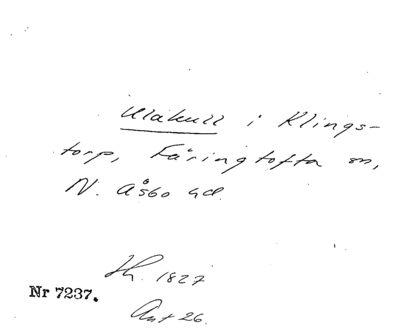 Ulakull i Klings-
torp, Färingtofta sn,
N. Åsbo hd.
Jh. 1827
Nr 7237.
Ant 26.